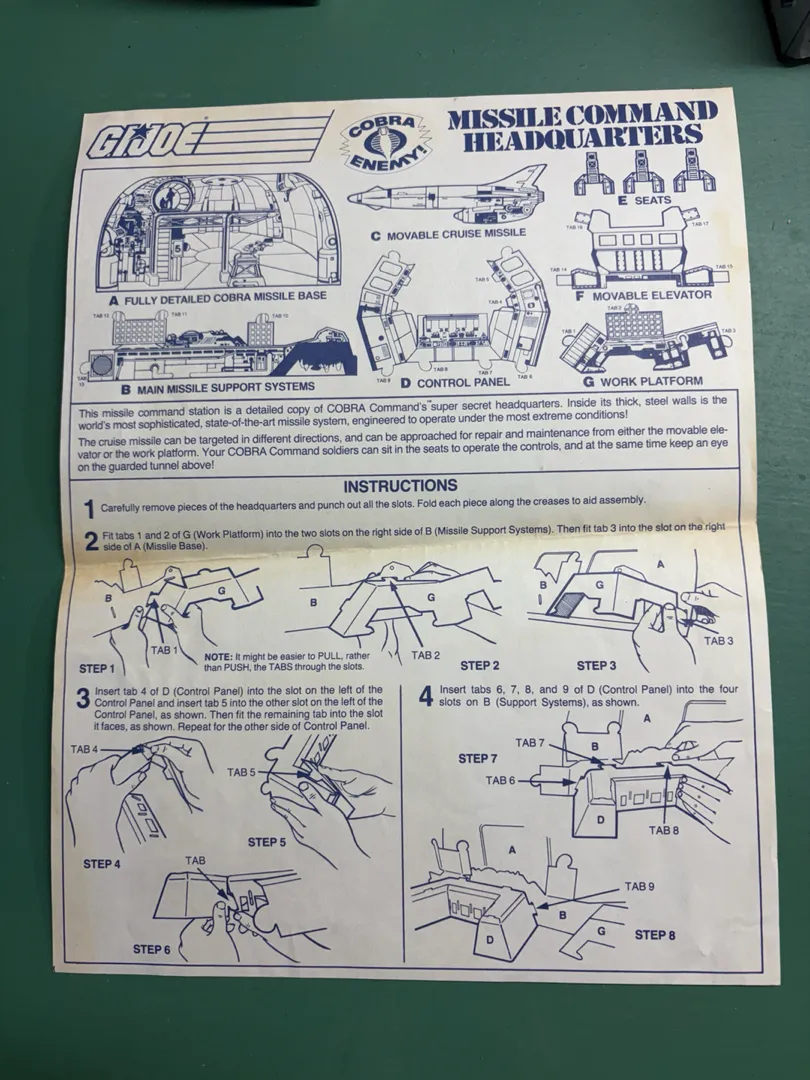 G.I. JOE
COBRA
ENEMY!
MISSILE COMMAND
HEADQUARTERS
E SEATS
C MOVABLE CRUISE MISSILE
5
A FULLY DETAILED COBRA MISSILE BASE
TAB 16
TAB 17
TAB 14
TAB 15
F MOVABLE ELEVATOR
TAB 12
TAB 11
TAB 10
TAB 13
B MAIN MISSILE SUPPORT SYSTEMS
TAB 5
TAB 4
TAB 9
TAB 8
TAB 7
TAB 6
D CONTROL PANEL
TAB 2
TAB 1
TAB 3
G WORK PLATFORM
This missile command station is a detailed copy of COBRA Command's™ super secret headquarters. Inside its thick, steel walls is the
world's most sophisticated, state-of-the-art missile system, engineered to operate under the most extreme conditions!
The cruise missile can be targeted in different directions, and can be approached for repair and maintenance from either the movable ele-
vator or the work platform. Your COBRA Command soldiers can sit in the seats to operate the controls, and at the same time keep an eye
on the guarded tunnel above!
INSTRUCTIONS
1 Carefully remove pieces of the headquarters and punch out all the slots. Fold each piece along the creases to aid assembly.
2 Fit tabs 1 and 2 of G (Work Platform) into the two slots on the right side of B (Missile Support Systems). Then fit tab 3 into the slot on the right
side of A (Missile Base).
B
G
TAB 1
STEP 1
NOTE: It might be easier to PULL, rather
than PUSH, the TABS through the slots.
B
G
TAB 2
STEP 2
B
G
A
TAB 3
STEP 3
3 Insert tab 4 of D (Control Panel) into the slot on the left of the
Control Panel and insert tab 5 into the other slot on the left of the
Control Panel, as shown. Then fit the remaining tab into the slot
it faces, as shown. Repeat for the other side of Control Panel.
TAB 4
STEP 4
TAB 5
STEP 5
TAB
STEP 6
4 Insert tabs 6, 7, 8, and 9 of D (Control Panel) into the four
slots on B (Support Systems), as shown.
A
TAB 7
B
STEP 7
TAB 6
D
TAB 8
A
TAB 9
B
G
D
STEP 8